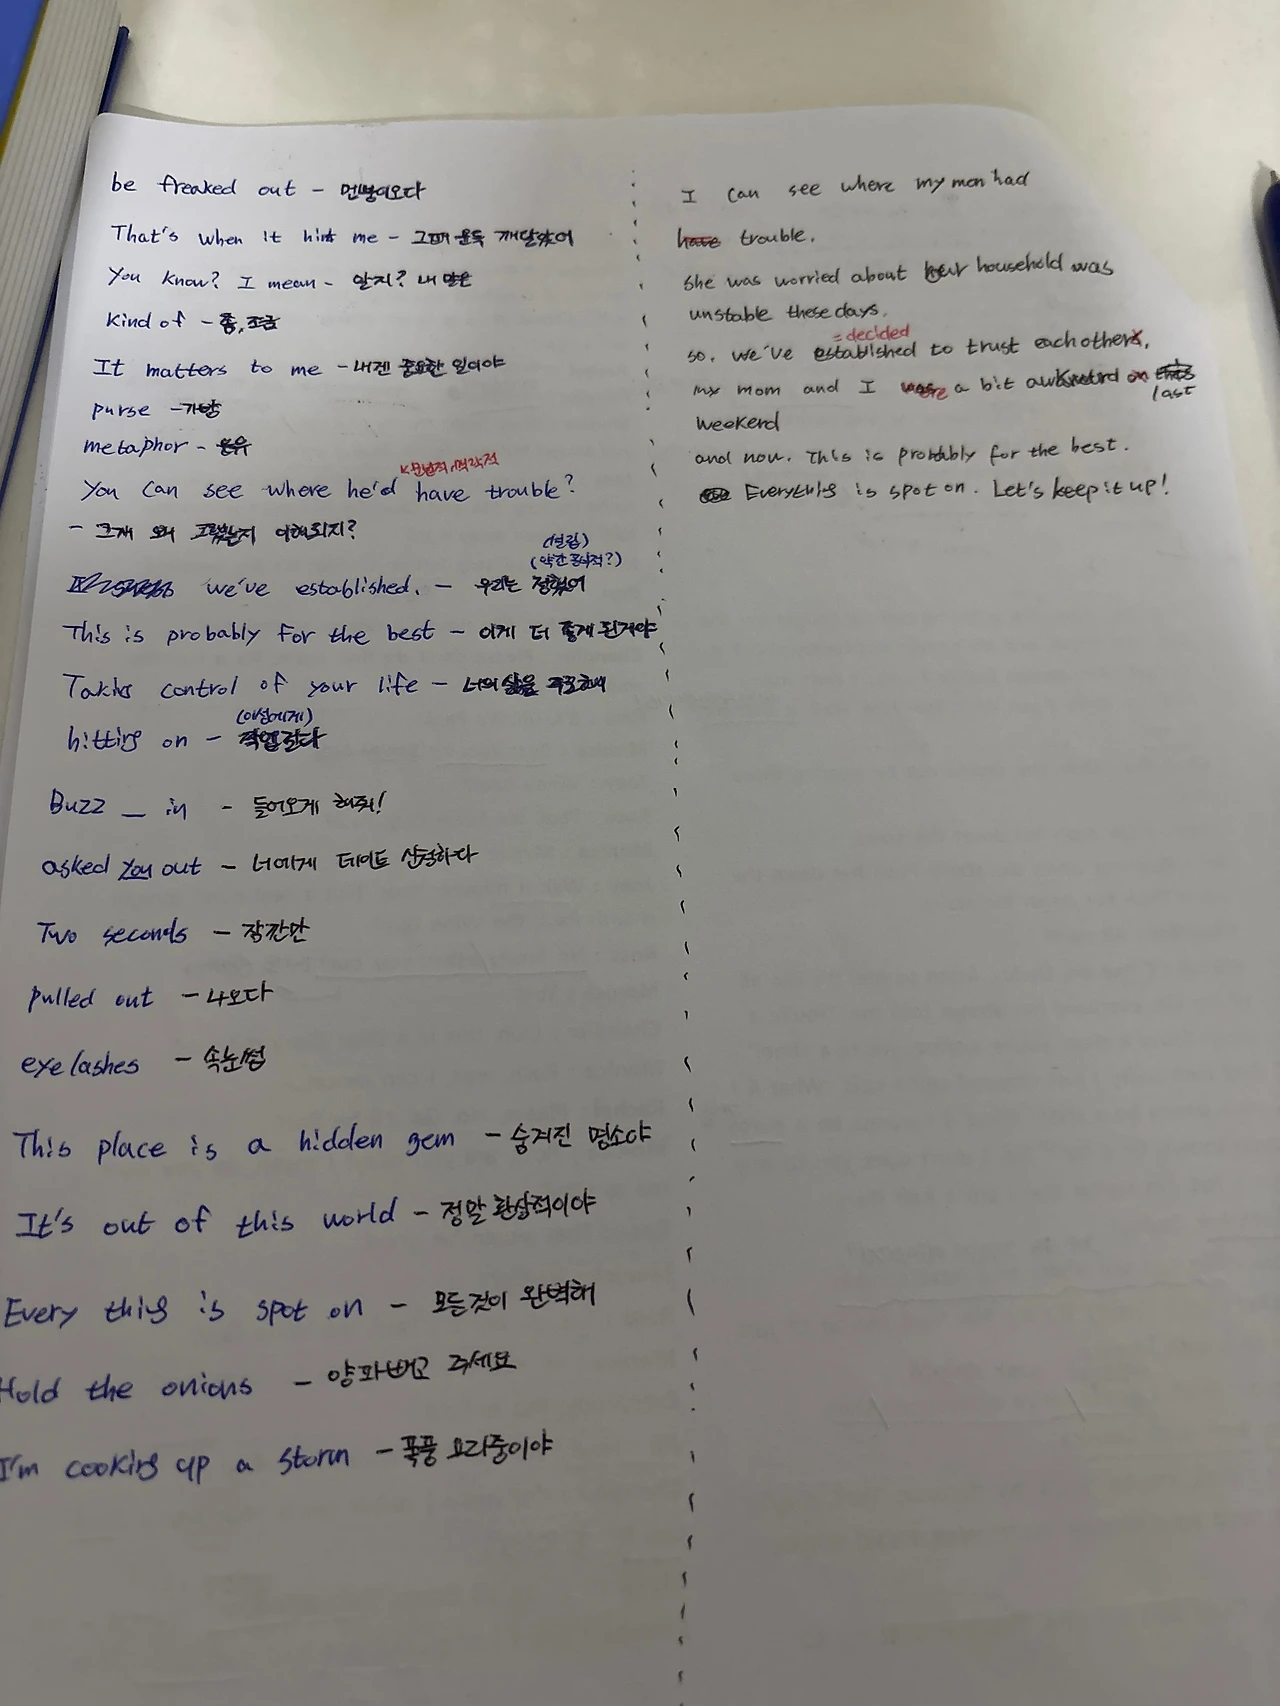 be freaked out - 멘붕이오다
That's when it hit me - 그때 문득 깨달았어
You know? I mean - 알지? 내 말은
Kind of - 좀, 조금
It matters to me - 내겐 중요한 일이야
purse - 가방
metaphor - 은유
You can see where he'd have trouble?
- 그가 왜 그랬는지 이해되지?
(약간 공식적?)
we've established. - 우리는 정했어
This is probably for the best - 이게 더 좋게 된거야
Taking control of your life - 너의 삶을 주도해
(이성에게)
hitting on - 작업걸다
Buzz _ in - 들어오게 해줘!
asked you out - 너에게 데이트 신청하다
Two seconds - 잠깐만
pulled out - 나오다
eyelashes - 속눈썹
This place is a hidden gem - 숨겨진 명소야
It's out of this world - 정말 환상적이야
Every thing is spot on - 모든것이 완벽해
Hold the onions - 양파빼고 주세요
I'm cooking up a storm - 폭풍 요리중이야
I can see where my mon had
have trouble.
she was worried about our household was
unstable these days.
= decided
so. we've established to trust each others.
my mom and I were a bit awkward on this
last
weekend
and now. This is probably for the best.
Everything is spot on. Let's keep it up!